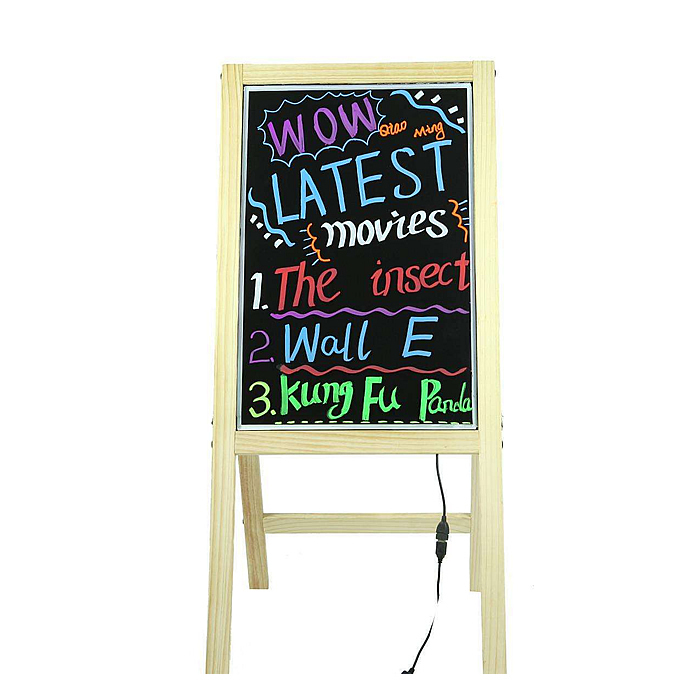 WOW Qiao Ming
LATEST
movies
1. The insect
2. Wall E
3. Kung Fu Panda